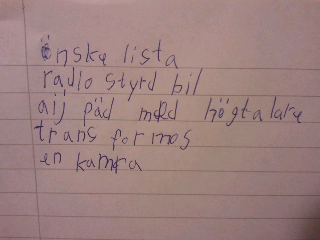 önske lista
radio styrd bil
aij päd med högtalare
trans formos
en kamera